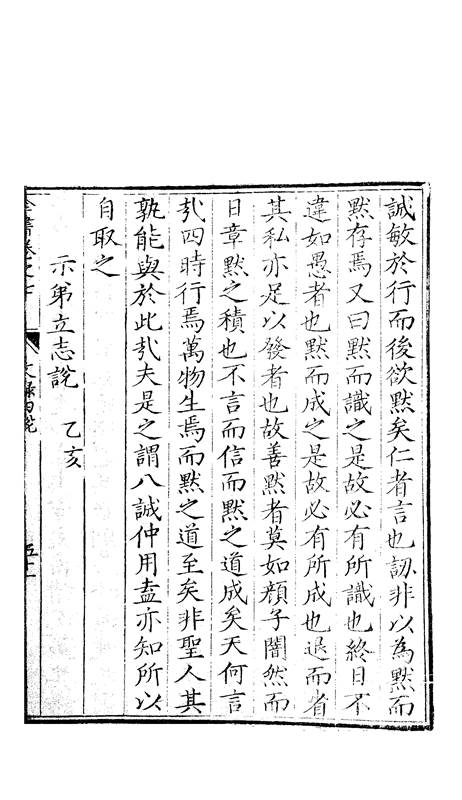 誠敏於行而後欲默矣仁者言也訒非以為默而
默存焉又曰默而識之是故必有所識也終日不
違如愚者也默而成之是故必有所成也退而省
其私亦足以發者也故善默者莫如顏子闇然而
日章默之積也不言而信而默之道成矣天何言
㢤四時行焉萬物生焉而默之道至矣非聖人其
孰能與於此㢤夫是之謂八誠仲用盍亦知所以
自取之
示弟立志說 乙亥
全書卷之七 文錄四說 五十一